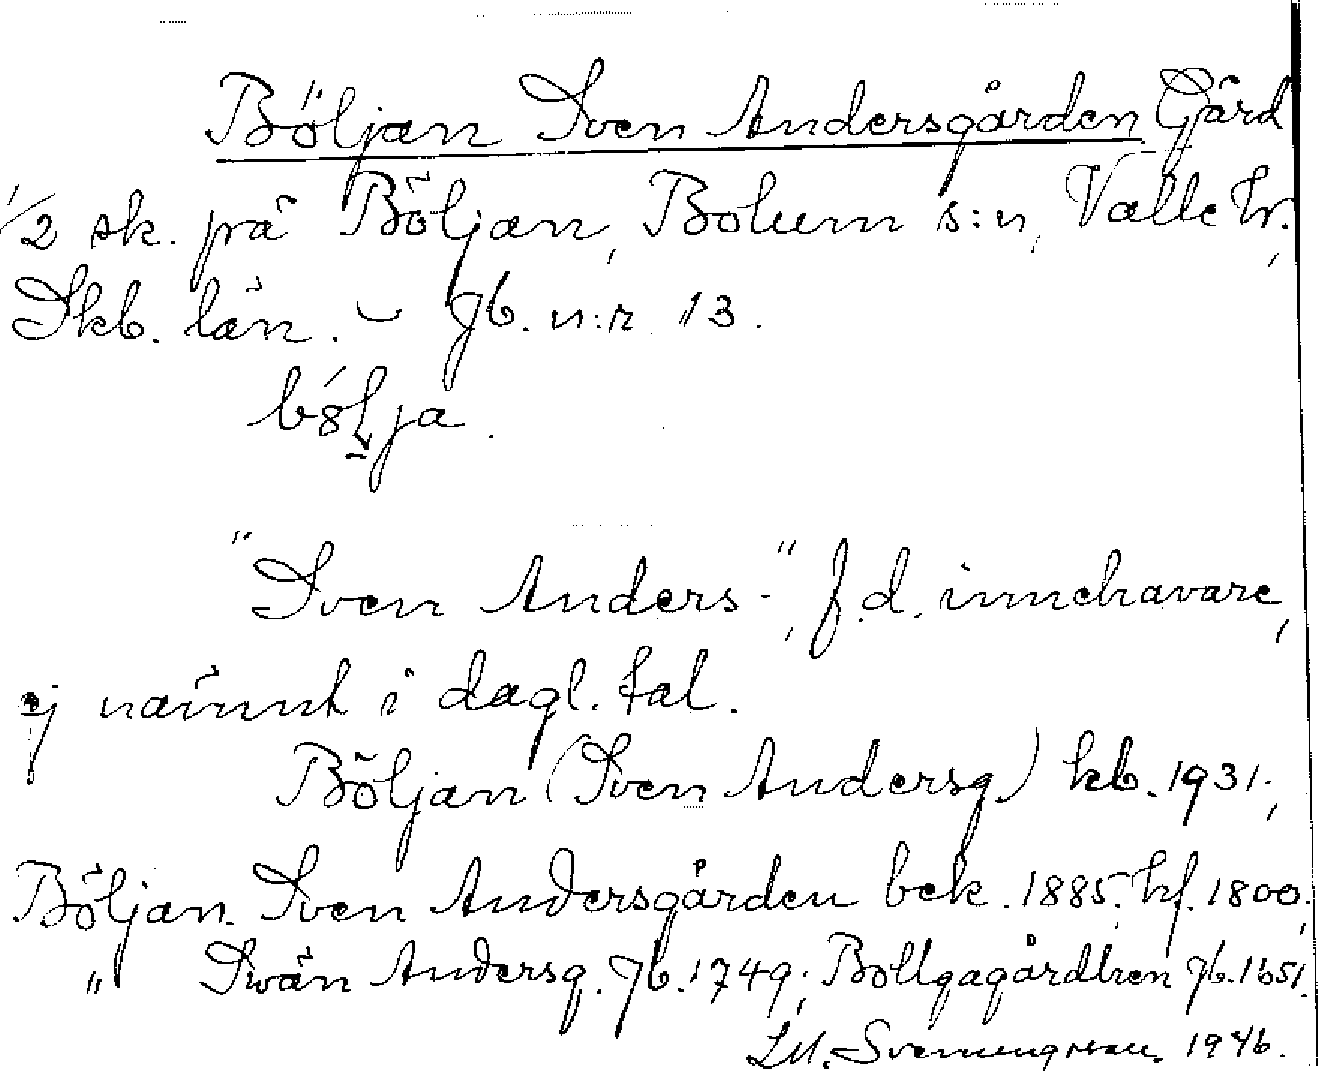 Böljan Sven Andersgården Gård
1/2 sk. på Böljan, Bolum s:n, Valle hr.
Skb. län. - Jb. n:r 13.
bö́lja.
"Sven Anders-", f.d. innehavare,
ej nämnt i dagl. tal.
Böljan (Sven Andersg) kb. 1931;
Böljan Sven Andersgården bek. 1885; hf. 1800;
" Swän Andersg. Jb. 1749; Bollgagårdhen Jb. 1651.
1946.